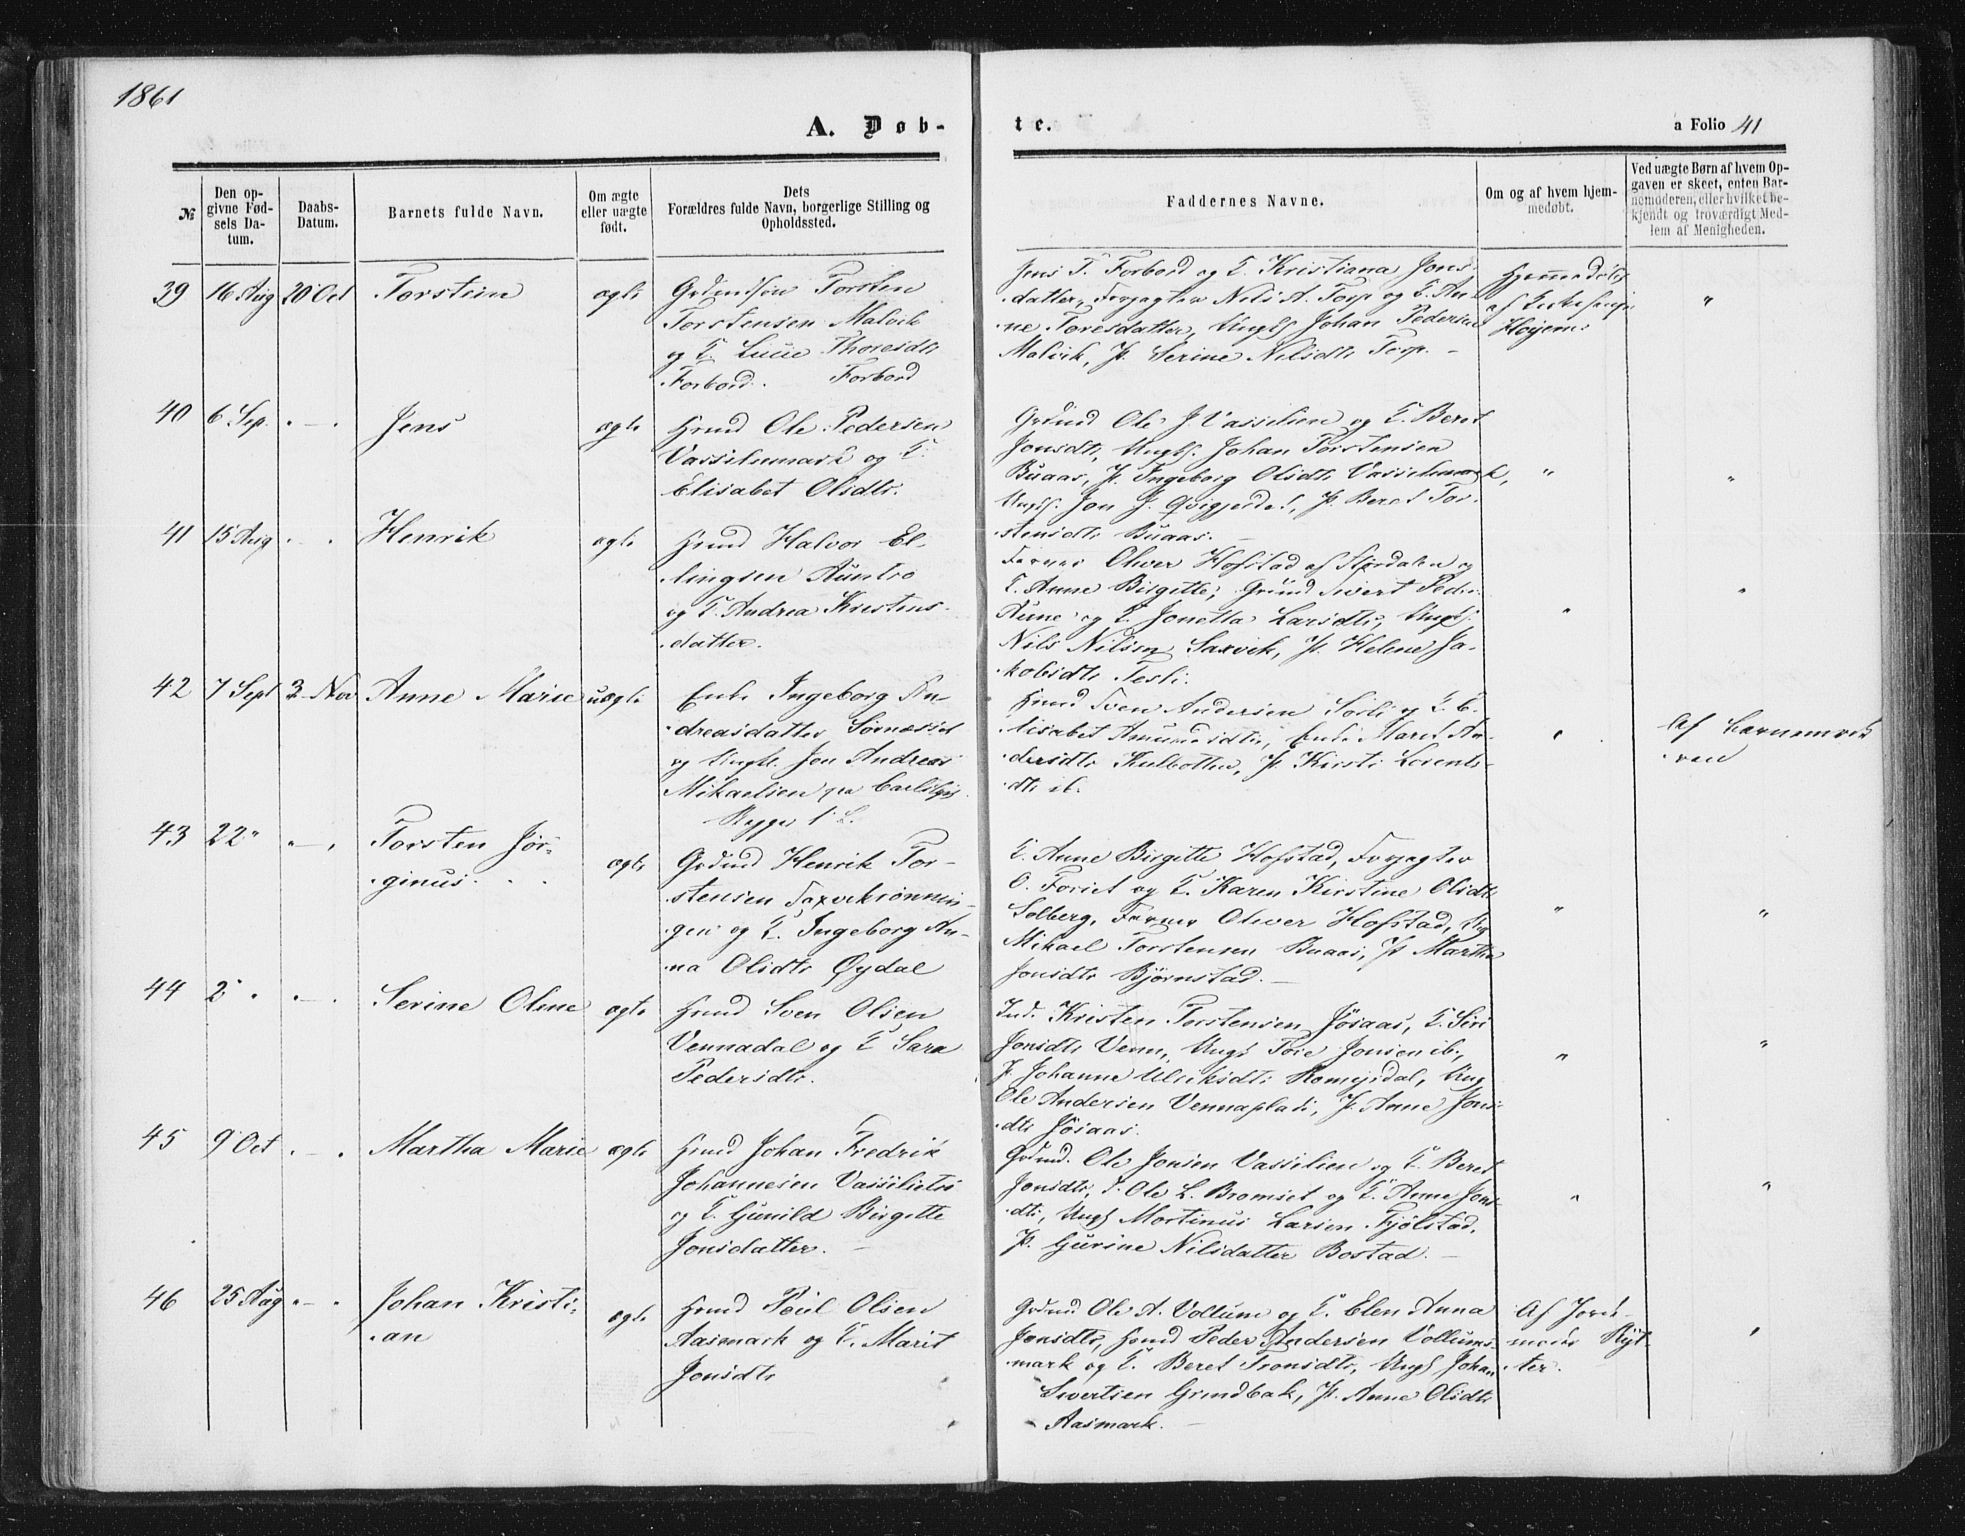 1861
A. Døb-
te.
a Folio 41
№
Den op-
givne Fød-
sels Da-
tum.
Daabs-
Datum.
Barnets fulde Navn.
Om ægte
eller uægte
født.
Dets
Forældres fulde Navn, borgerlige Stilling og
Opholdssted.
Faddernes Navne.
Om og af hvem hjem-
medøbt.
Ved uægte Børn af hvem Op-
gaven er skeet, enten Bar-
nemoderen, eller hvilket be-
kjendt og troværdigt Med-
lem af Menigheden.
39 16 Aug 20 Oct Torstein ægte
Torsten
Torstensen Malvik
og E. Thoresdtr
Forbord. Forbord
Jens T. Forbord og E. Kristiana Jons-
datter, Nils A. Torp og E. An-
ne Toresdatter, Ungk. Johan Pedersen
Malvik, P. Serine Nilsdtr Torp. -
Hjemmedøbt
af
Højem.
"
40 6 Sep. . - . Jens ægte
Hmd Ole Pedersen
og E.
Elisabet Olsdtr.
Grdmd Ole J Vassilien og E. Beret
Jonsdtr, Ungk. Johan Torstensen
Buaas, P. Ingeborg Olsdtr
Ungk. Jon J. P. Beret Tor-
stensdtr Buaas.
" "
41 15 Aug . - . Henrik ægte
Hmd Halvor El-
lingsen
og E. Andrea Kristens-
datter.
Oliver Hofstad af Stjørdalen og
E. Anne Birgitte, Grdmd Sivert Peder.
Aune og E. Jonetta Larsdtr, Ungk.
Nils Nilsen Saxvik, P. Helene Ja-
kobsdtr
" "
42 7 Sept 3 Nov Anne Marie uægte
Enke Ingeborg An-
dreasdatter
og Ungk. Jon Andreas
Mikaelsen
Hmd Sven Andersen og E. E-
lisabet Amundsdtr, Enke Marit An-
dersdtr Kulbotten, P. Kirsti Lorents-
dtr ib.
"
Af
43 22 " " - " Torsten Jør-
ginus. ægte
Grdmd Henrik Tor-
stensen
og E. Ingeborg An-
na Olsdtr Øydal
E. Anne Birgitte Hofstad,
O. og E. Karen Kirstine Olsdtr
Solberg, Oliver Hofstad,
Mikael Torstensen Buaas, P. Martha
Jonsdtr Bjørnstad. -
" "
44 2 " . - . Serine Oline ægte
Hmd Sven Olsen
Vennadal og E Sara
Pedersdtr.
Ind. Kristen Torstensen Jøsaas, E. Siri
Jonsdtr Venn, Ungk Tore Jonsen ib.,
P. Johanne Ulriksdtr
Ole Andersen P. Anne Jons-
dtr Jøsaas.
" "
45 9 Oct . - . Martha Marie ægte
Hmd Johan Fredrik
Johannesen
og E. Gunild Birgitte
Jonsdatter. -
Grdmd. Ole Jonsen Vassilien og E. Beret
Jonsdtr, Ole L. Bromset og E. Anne Jons-
dtr, Ungk Mortinus Larsen Fjølstad,
P. Gurine Nilsdatter Bostad. -
" "
46 25 Aug " - " Johan Kristi-
an ægte
Hmd Poul Olsen
Aasmark og E. Marit
Jonsdtr
Grdmd Ole A. Vollum og E. Elen Anna
Jonsdtr, Hmd Peder Andersen Vollums-
mark og E. Beret Tronsdtr, Ungk Johan
Sivertsen Grindbak, P. Anne Olsdtr
Aasmark. -
Af Jorde-
moder Ryt-
ter.
"